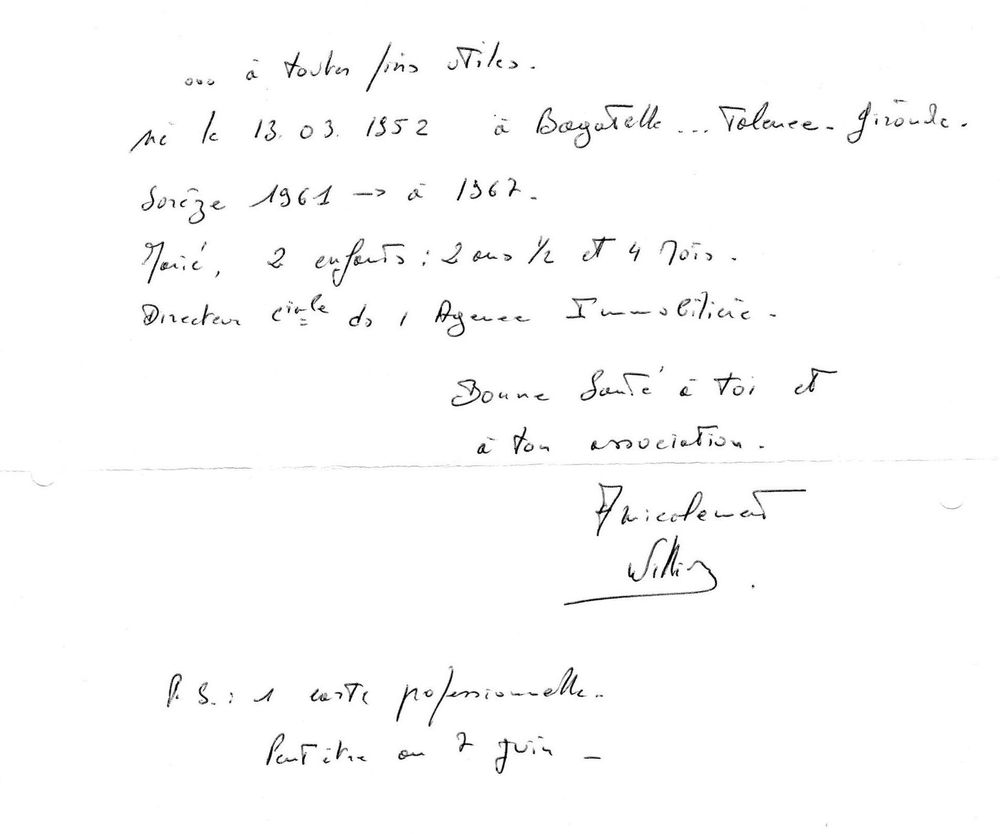 ... à toutes fins utiles.
né le 13.03.1952 à Bagatelle... Talence - Gironde.
Sorèze 1961 → à 1967.
Marié, 2 enfants : 2 ans 1/2 et 4 Mois.
Directeur cial de 1 Agence Immobilière.
Bonne Santé à toi et
à ton association.
Amicalement
P.S. : 1 carte pofessionnelle.
Peut être au 7 Juin -